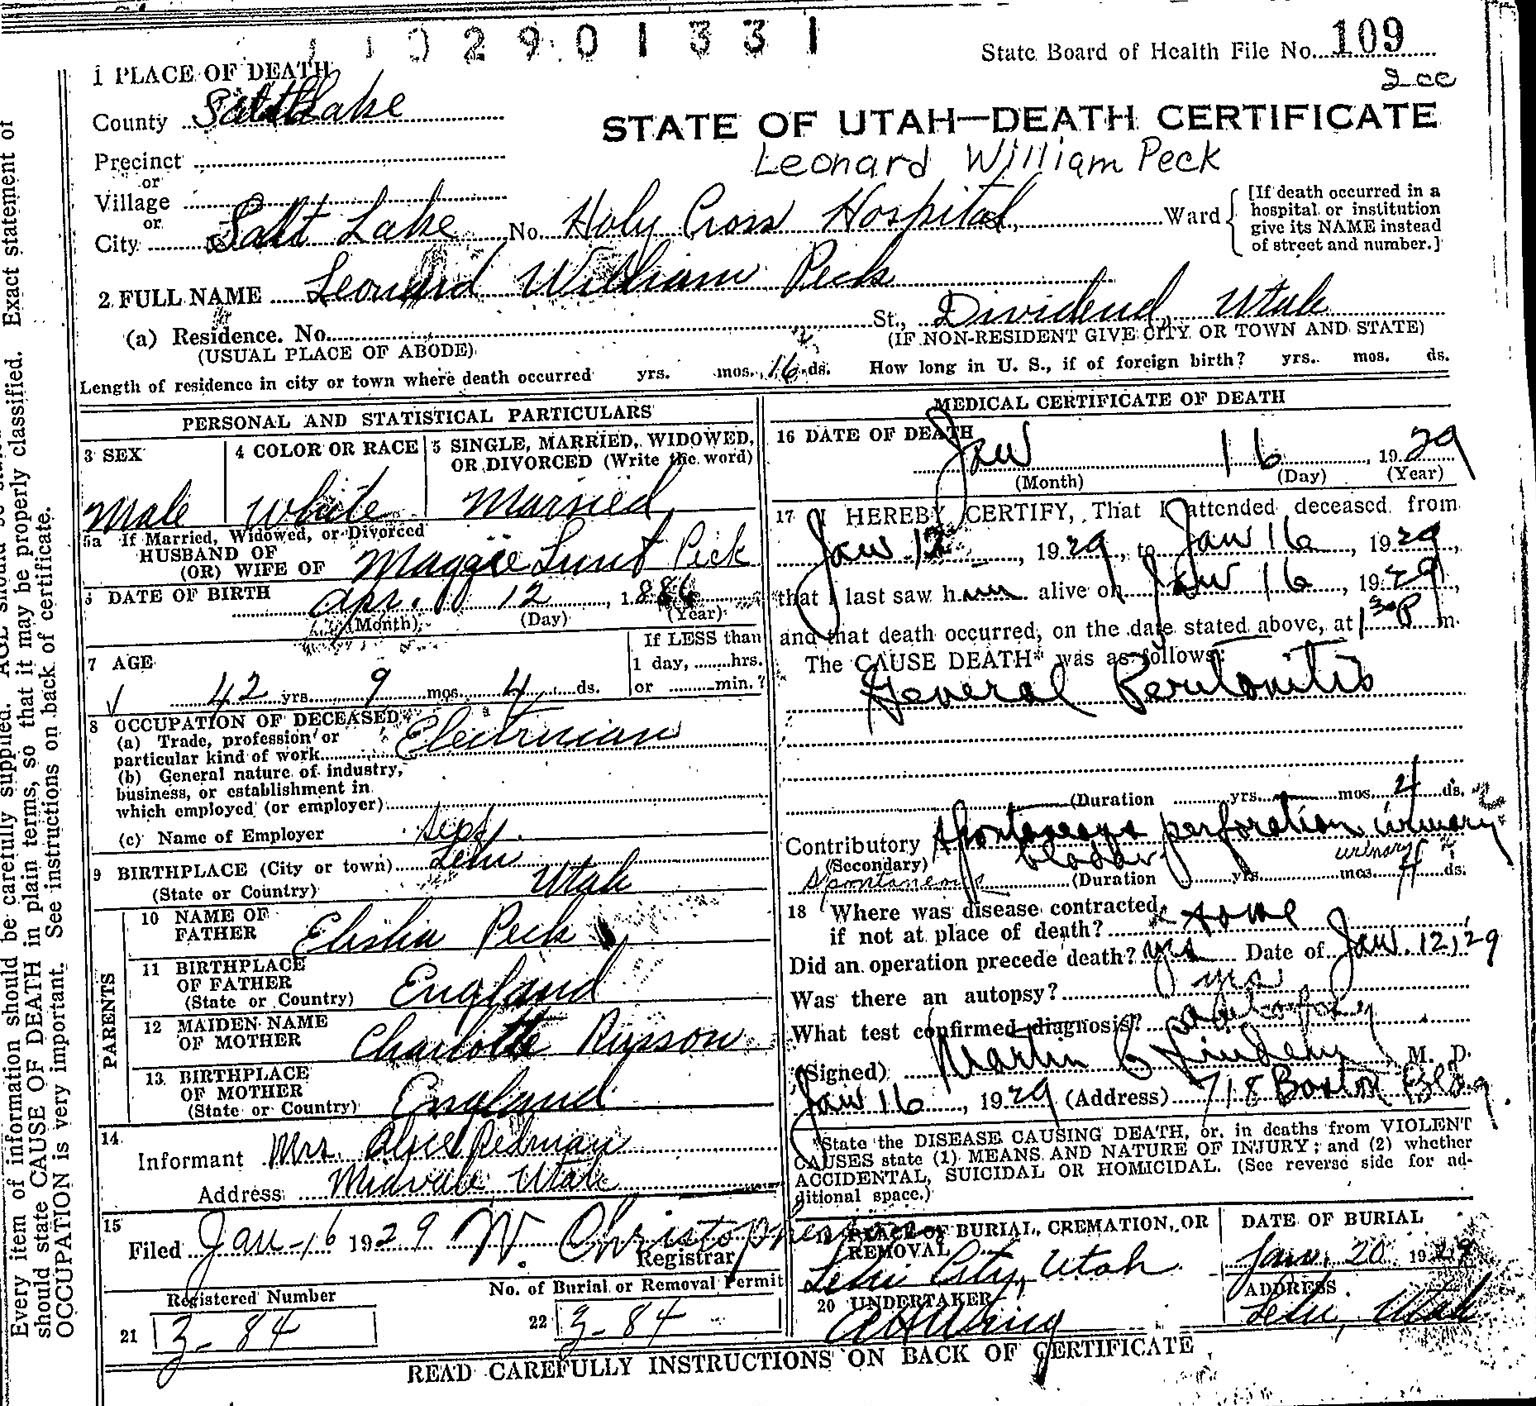 1 1 0 2 9 0 1 3 3 1
State Board of Health File No. 109
2cc
1 PLACE OF DEATH
County Salt Lake
STATE OF UTAH—DEATH CERTIFICATE
Leonard William Peck
Precinct
or
Village
or
City Salt Lake No. Holy Cross Hospital, Ward
[If death occurred in a hospital or institution give its NAME instead of street and number.]
2 FULL NAME Leonard William Peck
(a) Residence. No. St., Dividend, Utah
(USUAL PLACE OF ABODE) (IF NON-RESIDENT GIVE CITY OR TOWN AND STATE)
Length of residence in city or town where death occurred yrs. mos. 16 ds. How long in U. S., if of foreign birth? yrs. mos. ds.
PERSONAL AND STATISTICAL PARTICULARS
3 SEX
Male
4 COLOR OR RACE
White
5 SINGLE, MARRIED, WIDOWED, OR DIVORCED (Write the word)
Married
5a If Married, Widowed, or Divorced
HUSBAND OF
(OR) WIFE OF Maggie Lunt Peck
6 DATE OF BIRTH Apr. 12, 1886
(Month) (Day) (Year)
7 AGE
42 yrs. 9 mos. 4 ds.
If LESS than
1 day, hrs.
or min.?
8 OCCUPATION OF DECEASED
(a) Trade, profession or
particular kind of work Electrician
(b) General nature of industry,
business, or establishment in
which employed (or employer)
(c) Name of Employer
9 BIRTHPLACE (City or town) Lehi
(State or Country) Utah
PARENTS
10 NAME OF
FATHER Elisha Peck
11 BIRTHPLACE
OF FATHER
(State or Country) England
12 MAIDEN NAME
OF MOTHER Charlotte Russon
13 BIRTHPLACE
OF MOTHER
(State or Country) England
14
Informant Mrs. Alice Pedman
Address Midvale Utah
15
Filed Jan-16 1929 W. Christopherson
Registrar
Registered Number
21 3-84
No. of Burial or Removal Permit
22 3-84
MEDICAL CERTIFICATE OF DEATH
16 DATE OF DEATH
Jan 16, 1929
(Month) (Day) (Year)
17 I HEREBY CERTIFY, That I attended deceased from
Jan 12, 1929, to Jan 16, 1929,
that I last saw him alive on Jan 16, 1929,
and that death occurred, on the date stated above, at 1 30 P m.
The CAUSE DEATH* was as follows:
General Peritonitis
(Duration yrs. mos. 4 ds.
Contributory Spontaneous perforation urinary
(Secondary) bladder urinary
Spontaneous (Duration yrs. mos. 4 ds.
18 Where was disease contracted,
if not at place of death? home
Did an operation precede death? yes Date of Jan. 12, 29
Was there an autopsy? yes
What test confirmed diagnosis?
(Signed) Martin C Lindem M. D.
Jan 16, 1929 (Address) 718 Boston Bldg.
*State the DISEASE CAUSING DEATH, or, in deaths from VIOLENT
CAUSES state (1) MEANS AND NATURE OF INJURY; and (2) whether
ACCIDENTAL, SUICIDAL OR HOMICIDAL. (See reverse side for ad-
ditional space.)
19 PLACE OF BURIAL, CREMATION, OR
REMOVAL
Lehi City, Utah
DATE OF BURIAL
Jan. 20 1929
20 UNDERTAKER
A H Wing
ADDRESS
Lehi, Utah
READ CAREFULLY INSTRUCTIONS ON BACK OF CERTIFICATE
Every item of information should be carefully supplied. AGE should be
should state CAUSE OF DEATH in plain terms, so that it may be properly classified. Exact statement of
OCCUPATION is very important. See instructions on back of certificate.